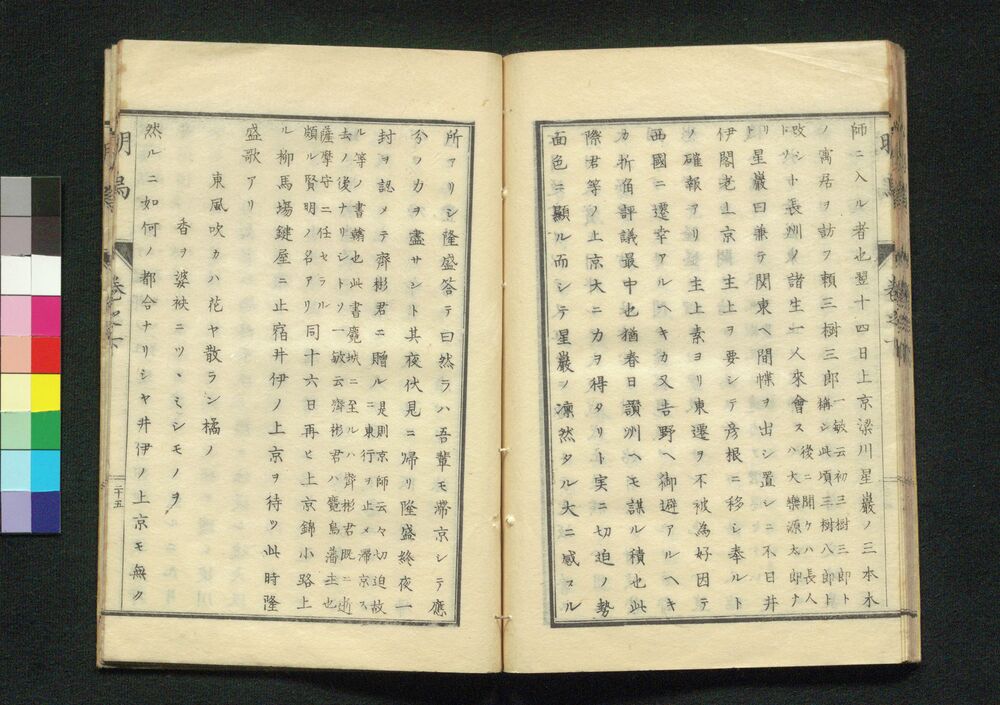 師ニ入ル者也翌十四日上京梁川星巖ノ三本木
ノ寓居ヲ訪フ頼三樹三郎一敏云初三樹三郎ト
稱シ此頃三樹八郎ト
改シト長州ノ諸生一人來會ス後ニ聞ケハ長人
ハ大樂源太郎ナ
リト
星巖曰兼テ関東ヘ間懍ヲ出シ置シニ不日井
伊閣老上京主上ヲ要シテ彦根ニ移シ奉ルト
ノ確報アリ主上素ヨリ東遷ヲ不被為好因テ
西國ニ遷幸アルヘキカ又吉野ヘ御避アルヘキ
カ折角評議最中也猶春日讃洲ヘモ謀ル積也此
際君等ノ上京大ニカヲ得タリト実ニ切迫ノ勢
面色ニ顯ル而シテ星巖ノ凛然タル大ニ感スル
所アリシ隆盛答テ曰然ラハ吾輩モ滯京シテ應
分ノカヲ盡サント其夜伏見ニ帰リ隆盛終夜一
封ヲ認メテ齊彬君ニ贈ル是則京師云々切迫故
ニ東行ヲ止メ滯京ス
ル等ノ書翰也此書麑城ニ至ルハ齊彬君既ニ逝
去ノ後ナリシトソ一敏云齊彬君ハ麑島藩主也
薩摩守ニ任セラル
頗ル賢明ノ名アリ同十六日再ヒ上京錦小路上
ル柳馬場鍵屋ニ止宿井伊ノ上京ヲ待ツ此時隆
盛歌アリ
東風吹カハ花ヤ散ラン橘ノ
香ヲ婆袂ニツヽミシモノヲ
然ルニ如何ノ都合ナリシヤ井伊ノ上京モ無ク
二十五